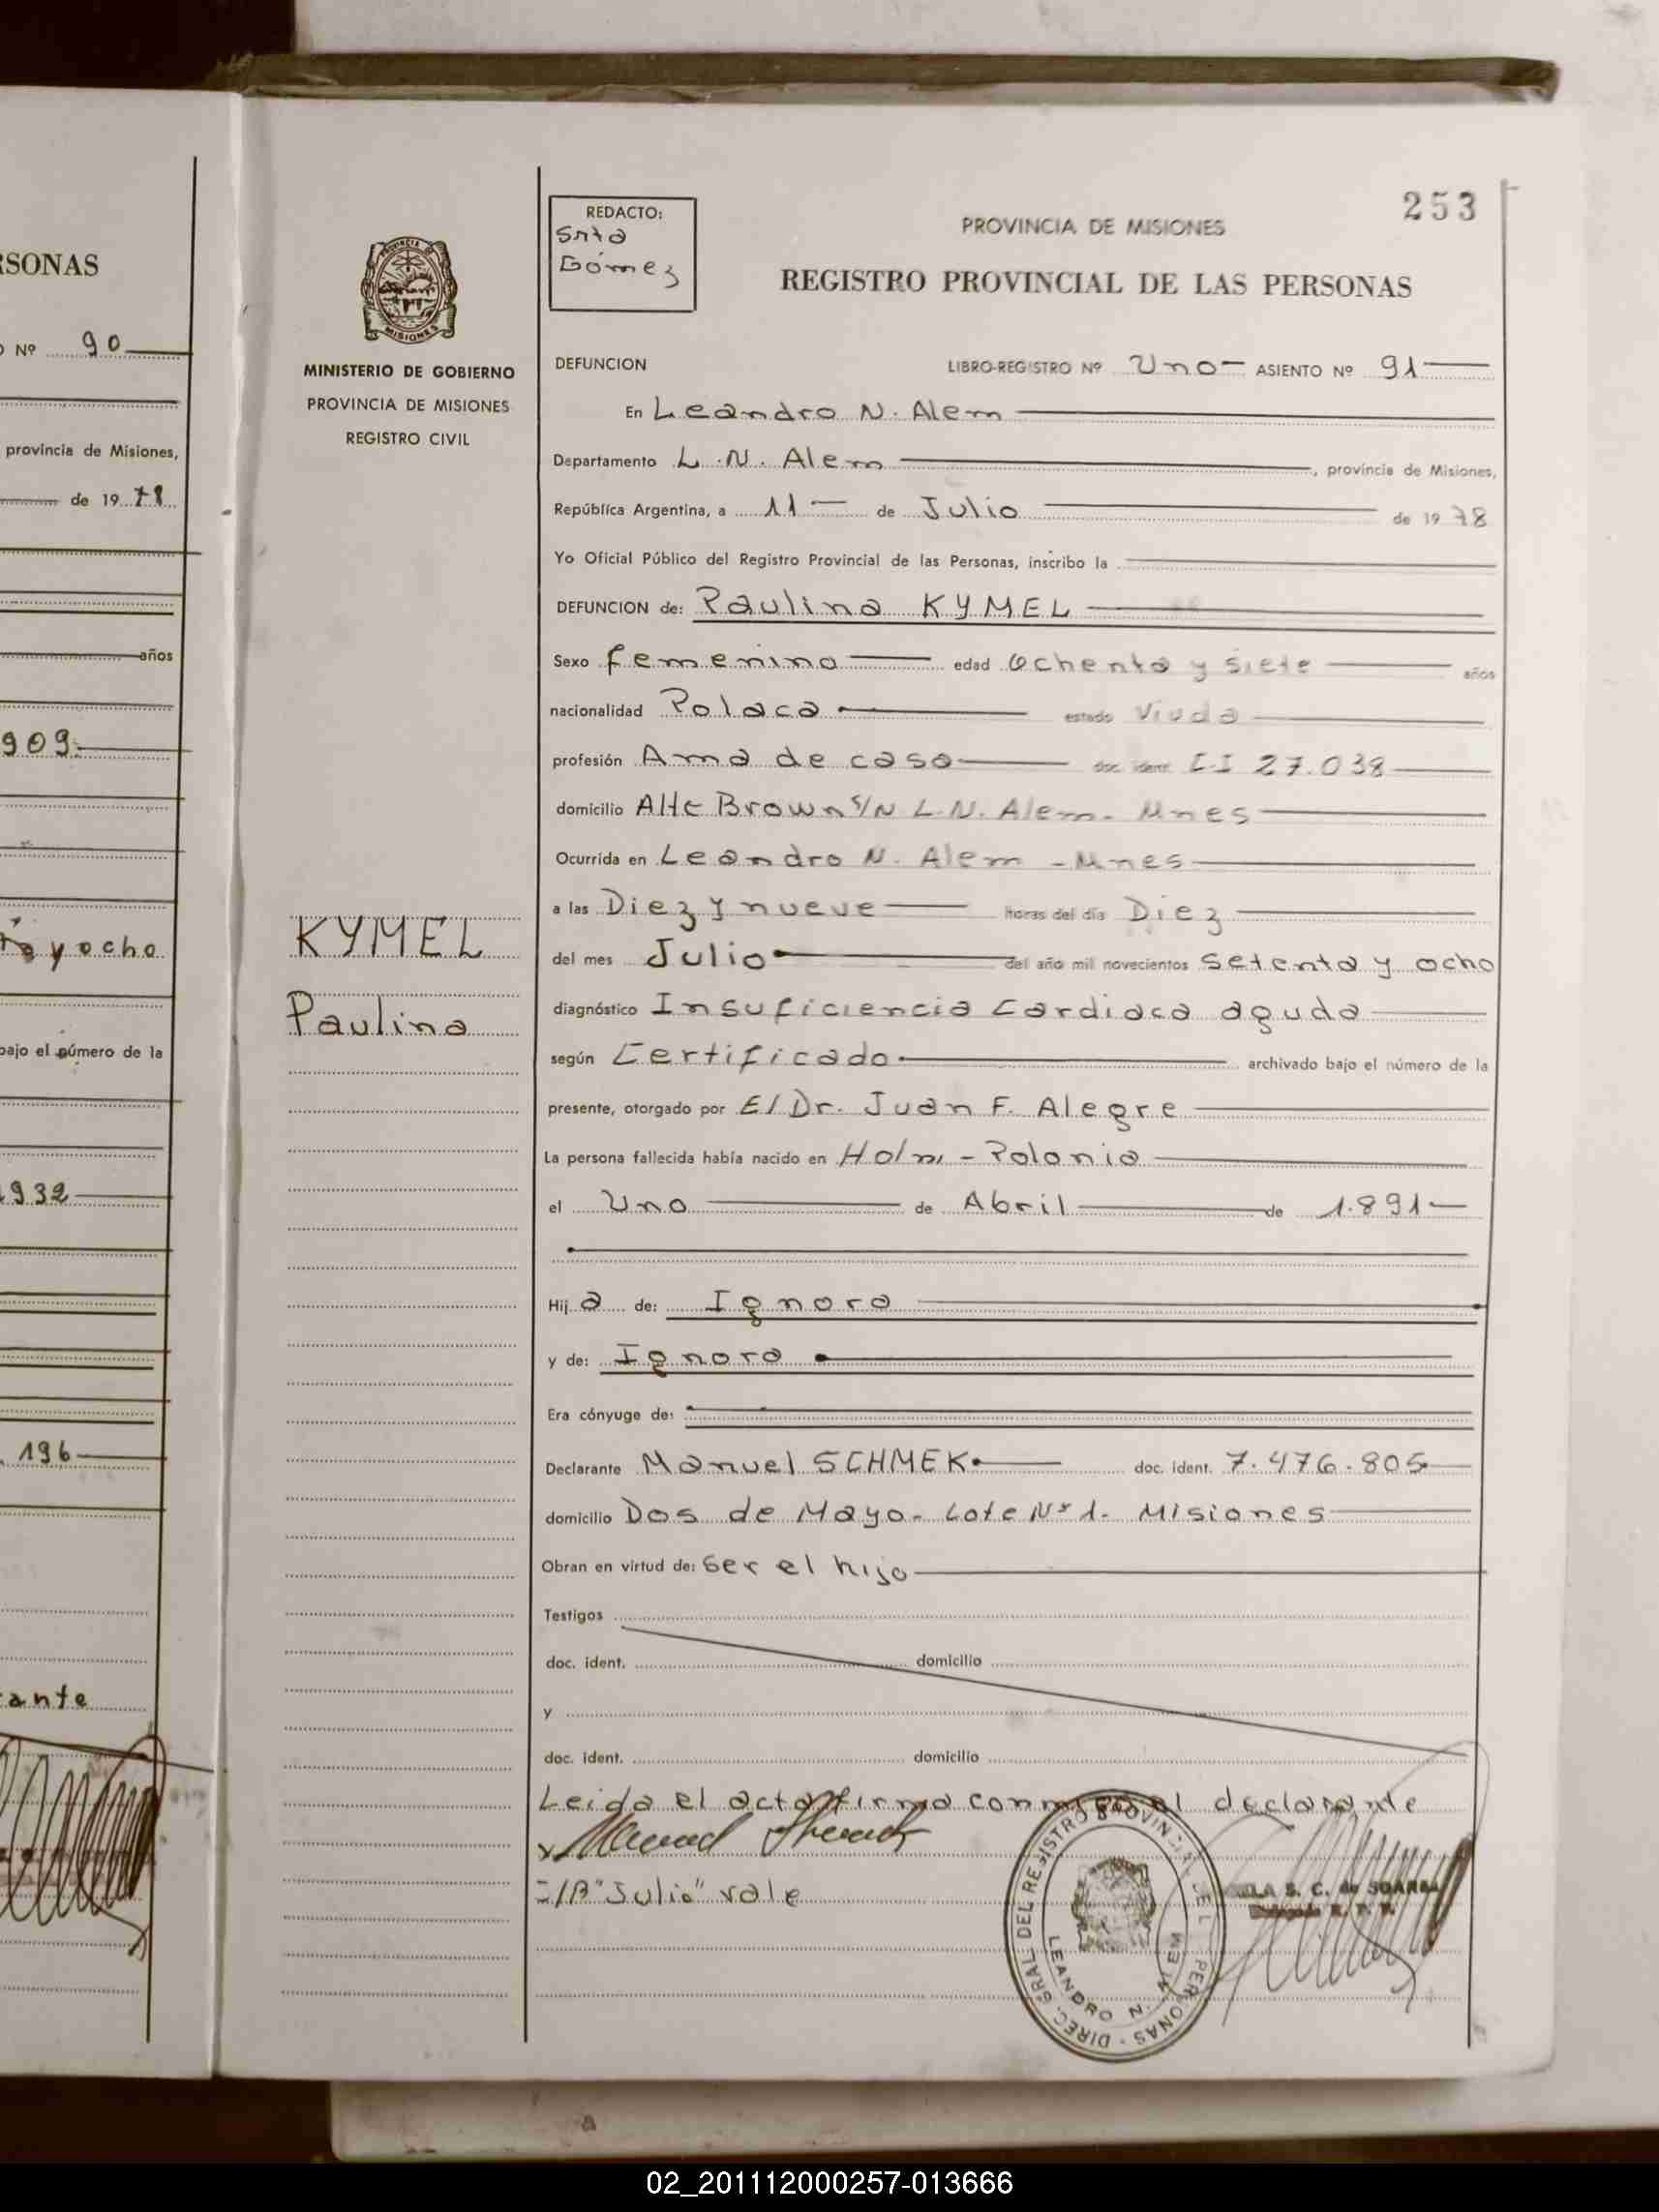 RSONAS
O Nº 90
provincia de Misiones,
de 1978
años
909
y ocho
bajo el número de la
1932
196
ante
253
REDACTO:
Srta
Gómez
PROVINCIA DE MISIONES
REGISTRO PROVINCIAL DE LAS PERSONAS
PROVINCIA DE
MISIONES
MINISTERIO DE GOBIERNO
PROVINCIA DE MISIONES
REGISTRO CIVIL
DEFUNCION LIBRO-REGISTRO Nº Uno ASIENTO Nº 91
En Leandro N. Alem
Departamento L.N. Alem, provincia de Misiones,
República Argentina, a 11 de Julio de 1978
Yo Oficial Público del Registro Provincial de las Personas, inscribo la
DEFUNCION de: Paulina KYMEL
Sexo femenino edad Ochenta y siete años
nacionalidad Polaca estado Viuda
profesión Ama de casa doc. ident. C.I 27.038
domicilio Alte Brown S/N L.N. Alem - Mnes
Ocurrida en Leandro N. Alem - Mnes
a las Diez y nueve horas del día Diez
KYMEL
del mes Julio del año mil novecientos setenta y ocho
Paulina
diagnóstico Insuficiencia Cardiaca aguda
según Certificado archivado bajo el número de la
presente, otorgado por El Dr. Juan F. Alegre
La persona fallecida había nacido en Holm - Polonia
el Uno de Abril de 1.891
Hija de: Ignora
y de: Ignora
Era cónyuge de:
Declarante Manuel SCHMEK doc. ident. 7.476.805
domicilio Dos de Mayo - Lote Nº 1 - Misiones
Obran en virtud de: Ser el hijo
Testigos
doc. ident. domicilio
y
doc. ident. domicilio
Leida el acta firma conmigo el declarante
E/A "Julio" vale
DIREC. GRAL. DEL REGISTRO PROVINCIAL DE L PERSONAS
LEANDRO N. ALEM
S. C. de
02_201112000257-013666